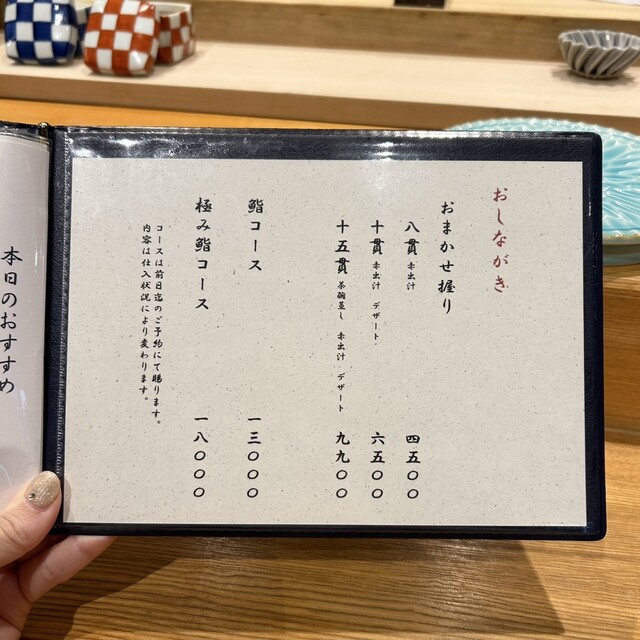 おしながき
おまかせ握り
八貫 赤出汁 四五〇〇
十貫 赤出汁 デザート 六五〇〇
十五貫 茶碗蒸し 赤出汁 デザート 九九〇〇
鮨コース 一三〇〇〇
極み鮨コース 一八〇〇〇
コースは前日迄のご予約にて賜ります。
内容は仕入状況により変わります。
本日のおすすめ